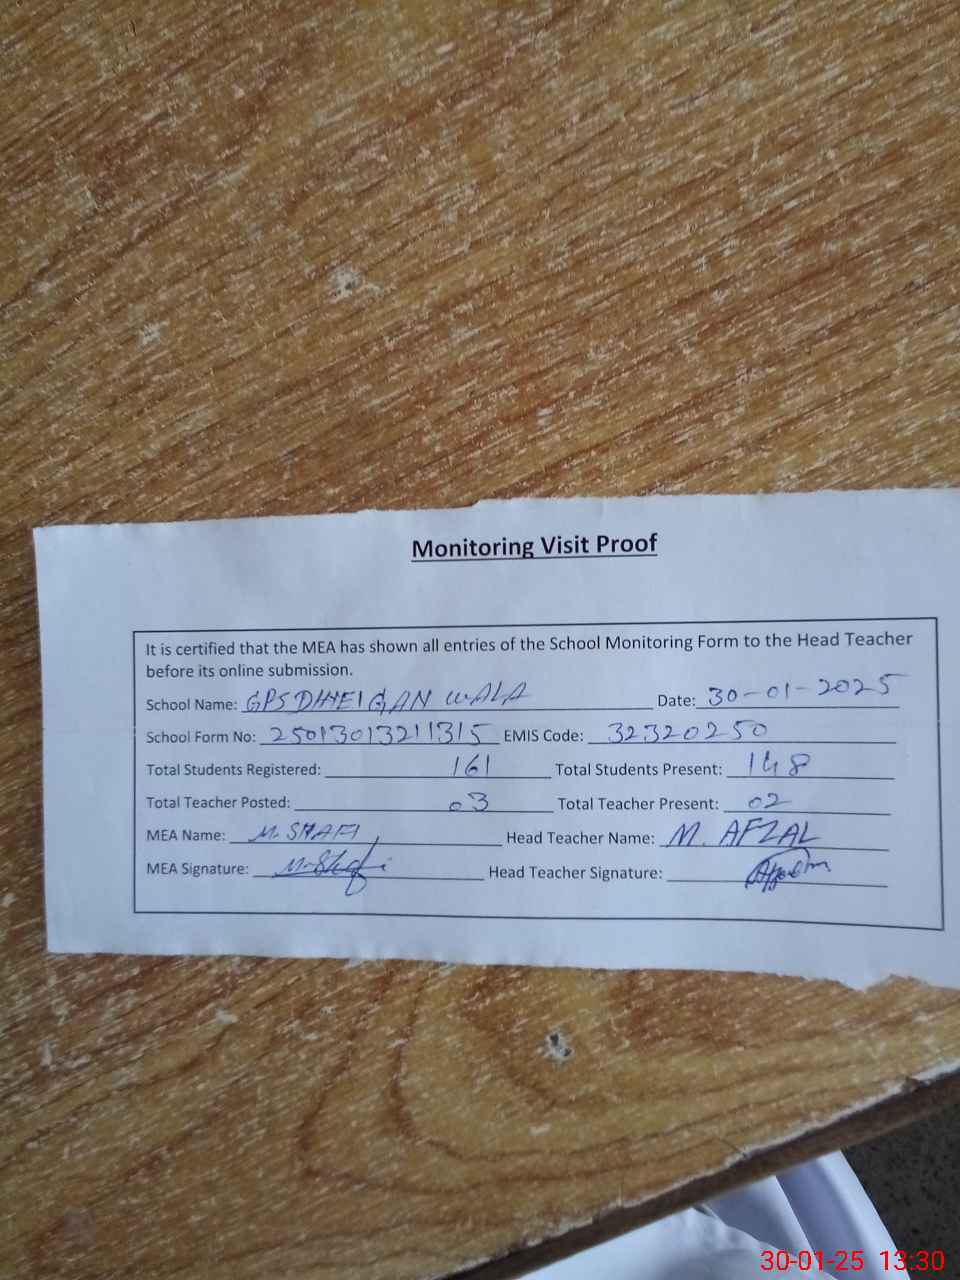 Monitoring Visit Proof
It is certified that the MEA has shown all entries of the School Monitoring Form to the Head Teacher
before its online submission.
School Name: GPS DHEIGAN WALA Date: 30-01-2025
School Form No: 25013013211315 EMIS Code: 32320250
Total Students Registered: 161 Total Students Present: 148
Total Teacher Posted: 03 Total Teacher Present: 02
MEA Name: M. SHAFI Head Teacher Name: M. AFZAL
MEA Signature: M. Shafi Head Teacher Signature:
30-01-25 13:30